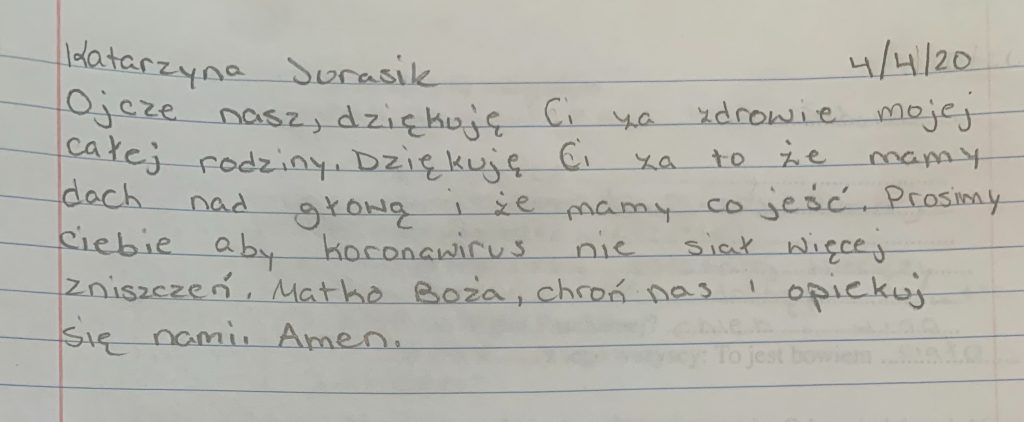 Katarzyna Jurasik 4/4/20
Ojcze nasz, dziękuję Ci za zdrowie mojej
całej rodziny. Dziękuję Ci za to że mamy
dach nad głową i że mamy co jeść. Prosimy
Ciebie aby koronawirus nie siał więcej
zniszczeń. Matko Boża, chroń nas i opiekuj
się nami. Amen.
To jest bowiem